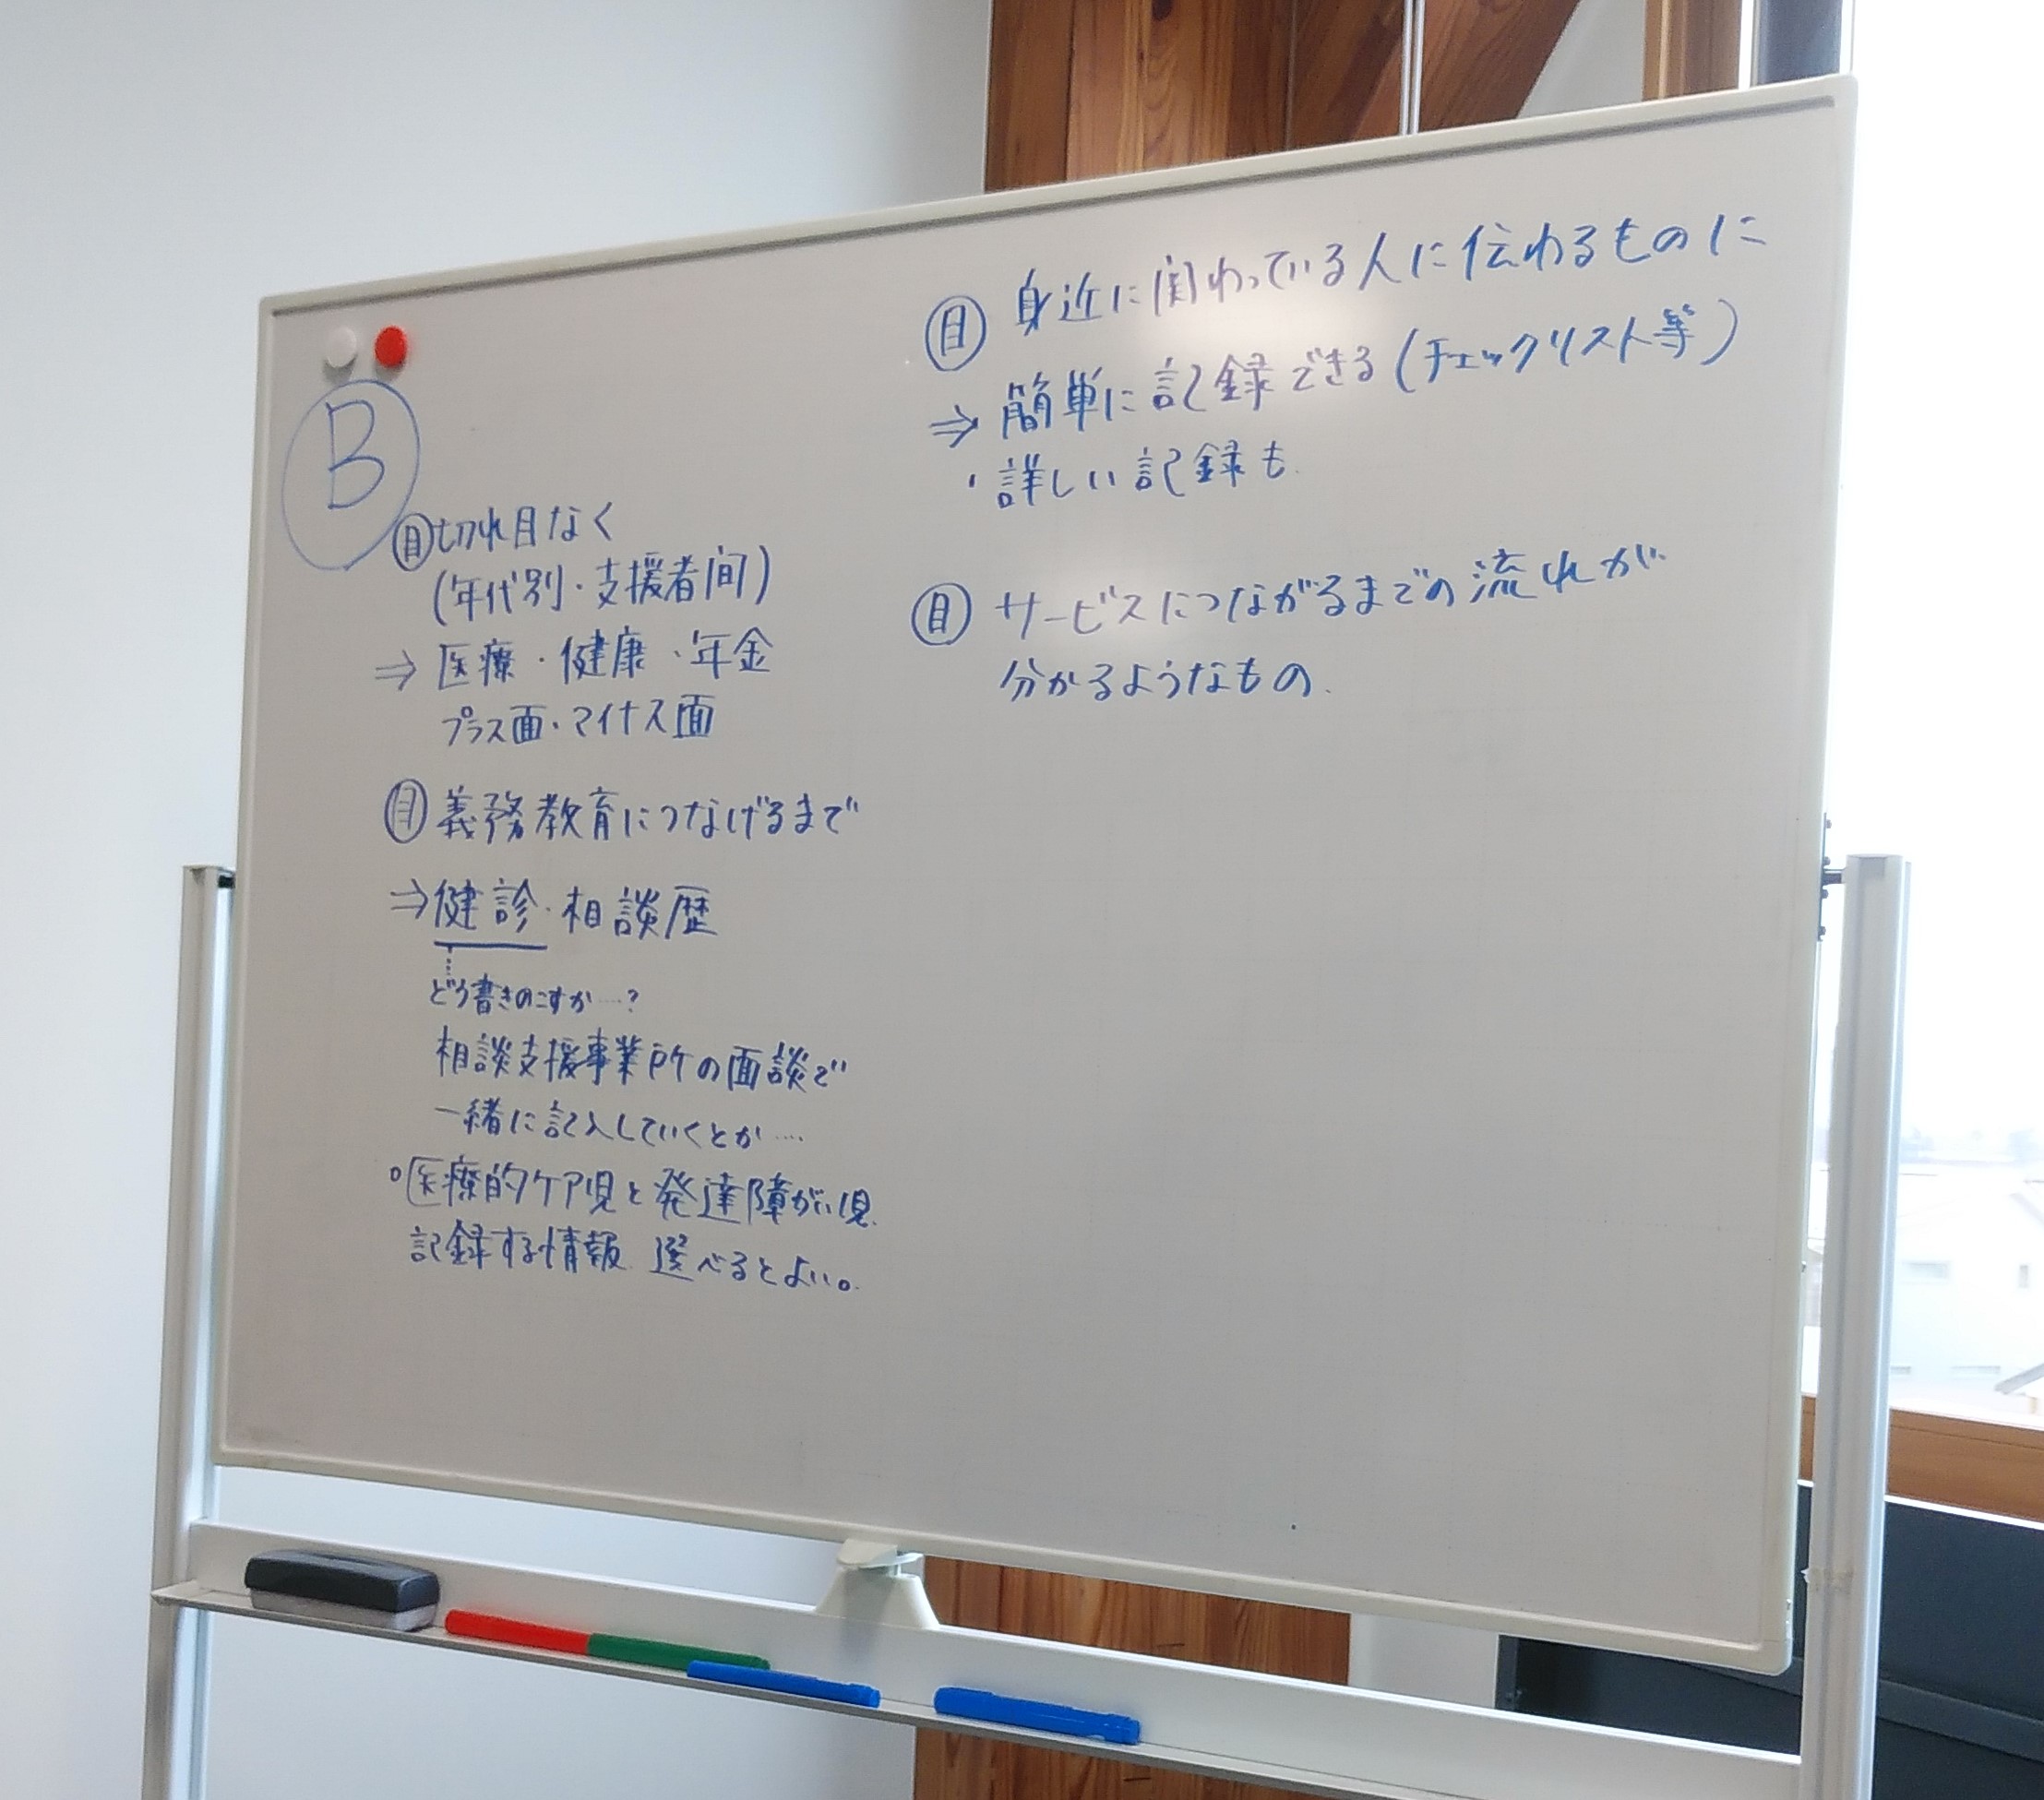 B
㊐切れ目なく
(年代別・支援者間)
⇒医療・健康・年金
プラス面・マイナス面
目 義務教育につなげるまで
⇒健診・相談歴
どう書きのこすか…?
相談支援事業所の面談で
一緒に記入していくとか…
○医療的ケア児と発達障がい児
記録する情報 選べるとよい。
目 身近に関わっている人に伝わるものに
⇒ 簡単に記録できる(チェックリスト等)
・詳しい記録も
目 サービスにつながるまでの流れが
分かるようなもの.